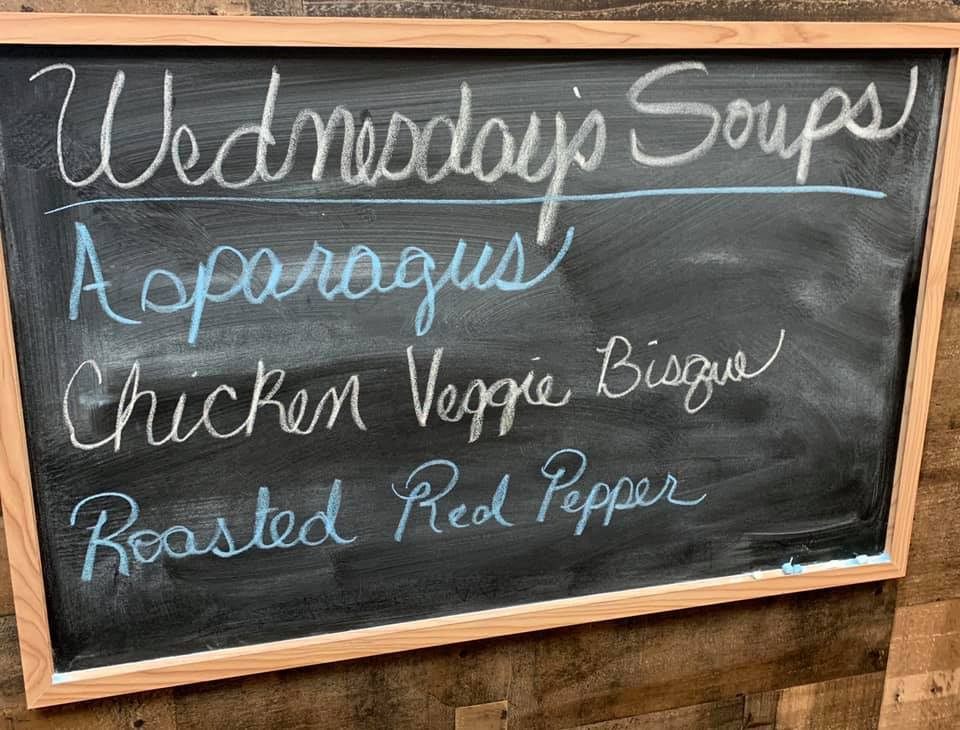 Wednesday's Soups
Asparagus
Chicken Veggie Bisque
Roasted Red Pepper